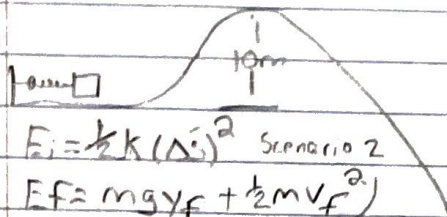 10m
Ei = ½K(Δi)² Scenario 2
Ef = mgyf + ½mvf²)